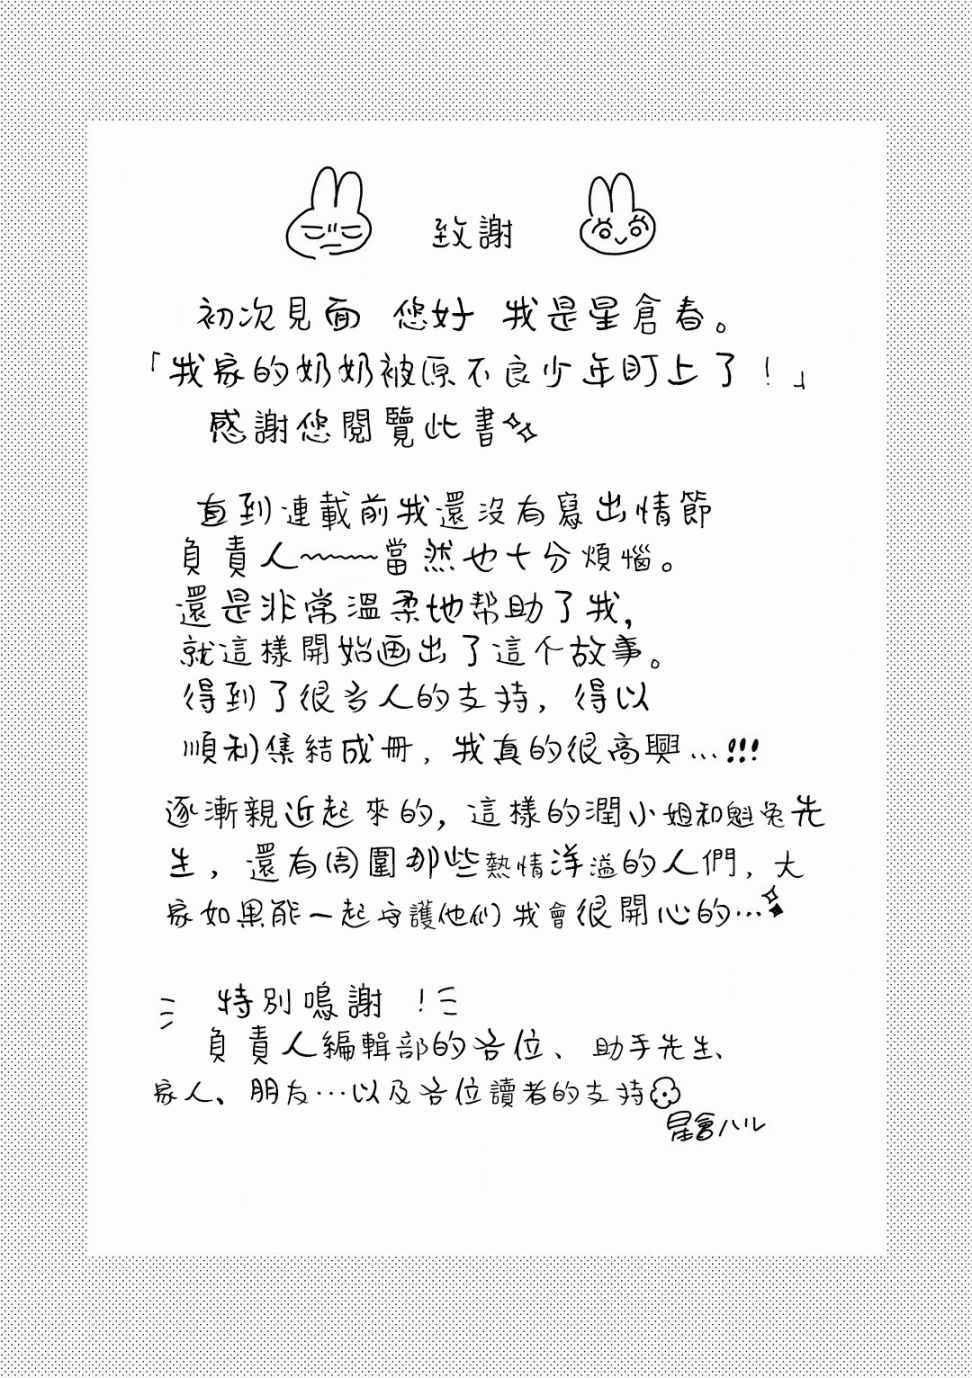 致謝
初次見面 您好 我是星倉春。
「我家的奶奶被原不良少年盯上了！」
感謝您閱覽此書
直到連載前我還沒有寫出情節
負責人~~~~當然也十分煩惱。
還是非常溫柔地帮助了我,
就這樣開始画出了這个故事。
得到了很多人的支持, 得以
順利集結成冊, 我真的很高興…!!!
逐漸親近起來的, 這樣的潤小姐和魁兔先
生, 還有周圍那些熱情洋溢的人們, 大
家如果能一起守護他们 我會很開心的…
特別鳴謝 !
負責人編輯部的各位、助手先生、
家人、朋友…以及各位讀者的支持
星倉ハル